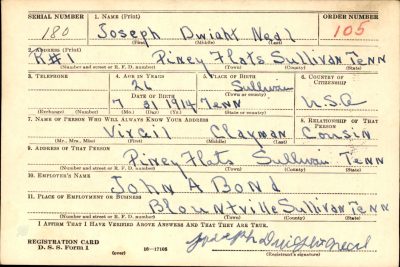 SERIAL NUMBER 1. NAME (Print) ORDER NUMBER
180 Joseph Dwight Neal 105
(First) (Middle) (Last)
2. ADDRESS (Print)
R#1 Piney Flats Sullivan Tenn
(Number and street or R. F. D. number) (Town) (County) (State)
3. TELEPHONE 4. AGE IN YEARS 5. PLACE OF BIRTH 6. COUNTRY OF CITIZENSHIP
26 Sullivan
DATE OF BIRTH (Town or county)
7 21 1914 Tenn U.S.A
(Exchange) (Number) (Mo.) (Day) (Yr.) (State or country)
7. NAME OF PERSON WHO WILL ALWAYS KNOW YOUR ADDRESS 8. RELATIONSHIP OF THAT PERSON
Virgil Clayman Cousin
(Mr., Mrs., Miss) (First) (Middle) (Last)
9. ADDRESS OF THAT PERSON
Piney Flats Sullivan Tenn
(Number and street or R. F. D. number) (Town) (County) (State)
10. EMPLOYER'S NAME
John A Bond
11. PLACE OF EMPLOYMENT OR BUSINESS
Blountville Sullivan Tenn
(Number and street or R. F. D. number) (Town) (County) (State)
I AFFIRM THAT I HAVE VERIFIED ABOVE ANSWERS AND THAT THEY ARE TRUE.
REGISTRATION CARD
D. S. S. Form 1 (over) 16—17105 Joseph Dwight Neal